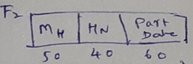 F2
MH HN Part
Date
50 40 60